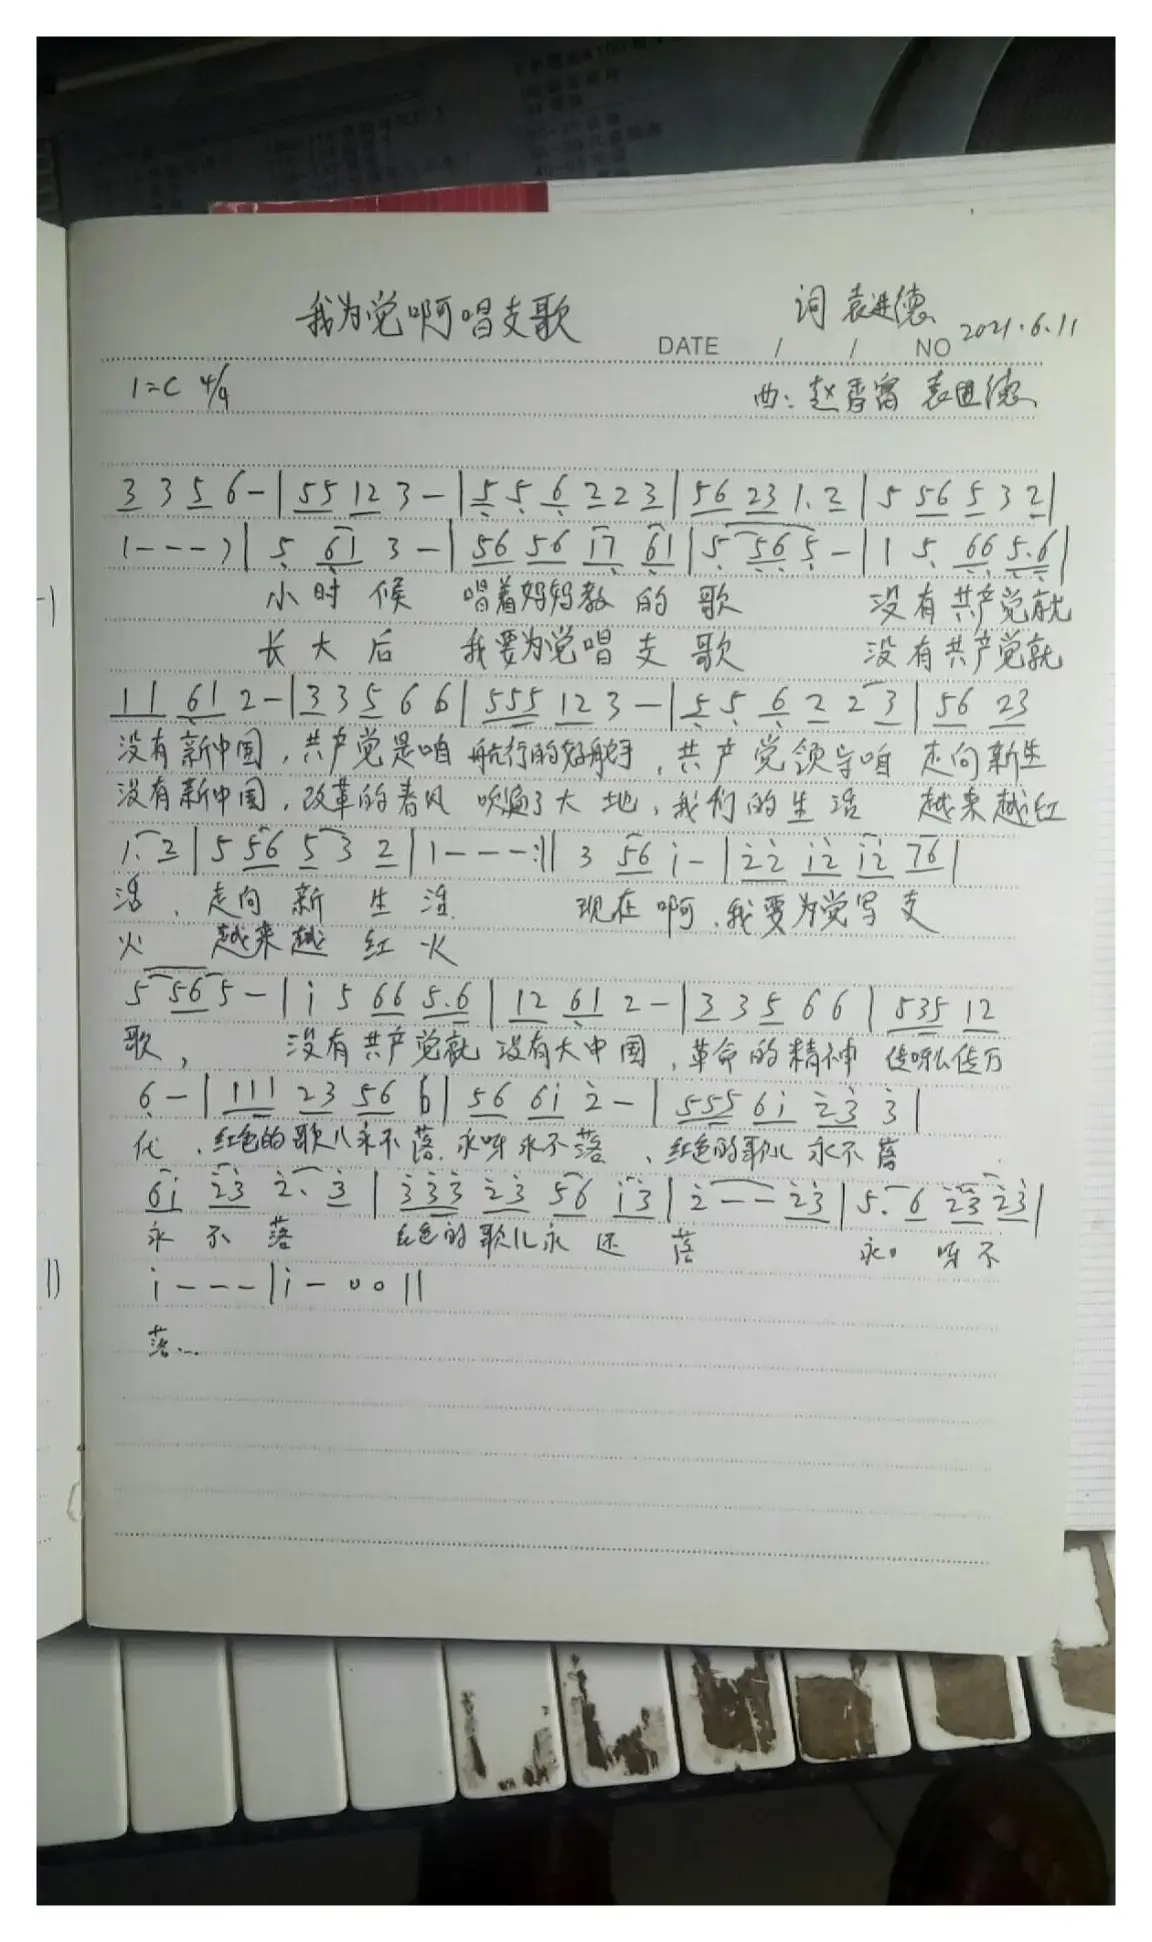 我为党啊唱支歌
词 袁进德
DATE / / NO 2021.6.11
1=C 4/4
曲: 赵香富 袁进德
3 3 5 6 - | 55 12 3 - | 5 5 6 2 2 3 | 56 23 1. 2 | 5 56 5 3 2 |
1 - - - ) | 5 61 3 - | 56 56 17 61 | 5 56 5 - | 1 5 66 5.6 |
小时候 唱着妈妈教的歌 没有共产党就
长大后 我要为党唱支歌 没有共产党就
11 61 2 - | 3 3 5 6 6 | 555 12 3 - | 5 5 6 2 2 3 | 56 23
没有新中国, 共产党是咱 航行的好舵手, 共产党领导咱 走向新生
没有新中国, 改革的春风 吹遍了大地, 我们的生活 越来越红
1. 2 | 5 56 5 3 2 | 1 - - - :|| 3 56 i - | 22 12 12 76 |
活, 走向新生活 现在啊, 我要为党写支
火 越来越红火
5 56 5 - | i 5 66 5.6 | 12 61 2 - | 3 3 5 6 6 | 535 12
歌, 没有共产党就 没有大中国, 革命的精神 传万
6 - | 111 23 56 6 | 56 6i 2 - | 555 6i 23 3 |
代, 红色的歌儿永不落, 永呀永不落, 红色的歌儿 永不落
6i 23 2. 3 | 333 23 56 i3 | 2 - - 23 | 5. 6 23 23 |
永不落 红色的歌儿永 落 永 呀不
i - - - | i - 0 0 ||
落...